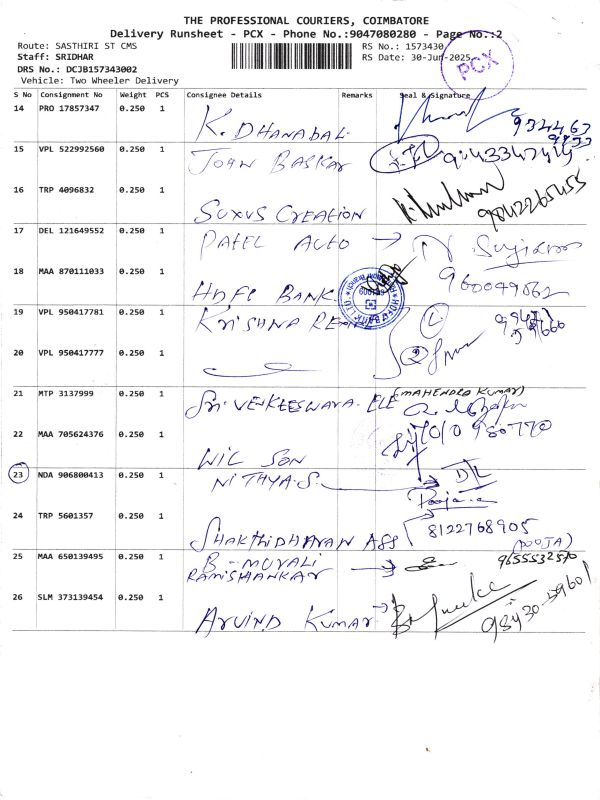 THE PROFESSIONAL COURIERS, COIMBATORE
Delivery Runsheet - PCX - Phone No.:9047080280 - Page No.:2
Route: SASTHIRI ST CMS
RS No.: 1573430
Staff: SRIDHAR
RS Date: 30-Jun-2025
PCX
DRS No.: DCJB157343002
Vehicle: Two Wheeler Delivery
S No Consignment No Weight PCS Consignee Details Remarks Seal & Signature
14 PRO 17857347 0.250 1 K. DHANABAL
15 VPL 522992560 0.250 1 JOHN BASKAR
16 TRP 4096832 0.250 1 SUXUS CREATION 9842265455
17 DEL 121649552 0.250 1 PATEL AUTO
18 MAA 870111033 0.250 1 HDFC BANK 960049862
HDFC BANK LTD
19 VPL 950417781 0.250 1 KRISHNA
20 VPL 950417777 0.250 1
21 MTP 3137999 0.250 1 Sri VENKEESWARA ELE (MAHENDRA KUMAR)
22 MAA 705624376 0.250 1 WIL SON
23 NDA 906800413 0.250 1 NITHYA.S. D/L
Pooja
24 TRP 5601357 0.250 1 SHAKTHIDHARAN ASS 8122768905
(POOJA)
25 MAA 650139495 0.250 1 B-MURALI 9655532570
RAMSHANKAR
26 SLM 373139454 0.250 1 ARVIND KUMAR 98430-59601